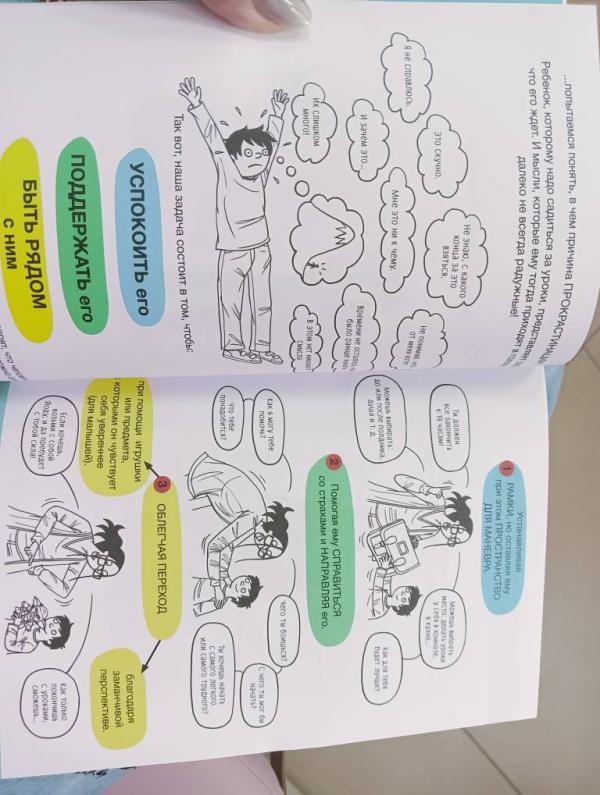 ...попытаемся понять, в чем причина
Ребенок, которому надо садиться за уроки,
что его ждет. И мысли, которые ему тогда приходят
далеко не всегда радужные!
Я не справлюсь.
Это скучно.
Не знаю, с какого
конца за это
взяться.
Их слишком
много!
И зачем это...
Мне это ни к чему.
Не понимаю, что
от меня хотят
Времени не
В этом нет
смысла
Так вот, наша задача состоит в том, чтобы:
УСПОКОИТЬ его
ПОДДЕРЖАТЬ его
БЫТЬ РЯДОМ
с ним
1
Устанавливая
РАМКИ, но оставляя ему
при этом ПРОСТРАНСТВО
ДЛЯ МАНЕВРА.
Ты должен
все закончить
к 19 часам!
Можешь выбирать:
до или после полдника,
душа и т. д.
Можешь выбрать
место: делать уроки
у себя в комнате,
в кухне...
Как для тебя
будет лучше?
2
Помогая ему СПРАВИТЬСЯ
со страхами и НАПРАВЛЯЯ его.
Как я могу тебе
помочь?
Что тебе
понадобится?
Чего ты боишься?
С чего ты мог бы
начать?
Ты хочешь начать
с самого легкого
или самого трудного?
3
ОБЛЕГЧАЯ ПЕРЕХОД
при помощи игрушки
или предмета,
с которыми он чувствует
себя увереннее
(для малышей).
благодаря
заманчивой
перспективе.
Если хочешь,
возьми с собой
Йоду, и да пребудет
с тобой сила!
Как только
покончишь
с уроками,
сможешь...